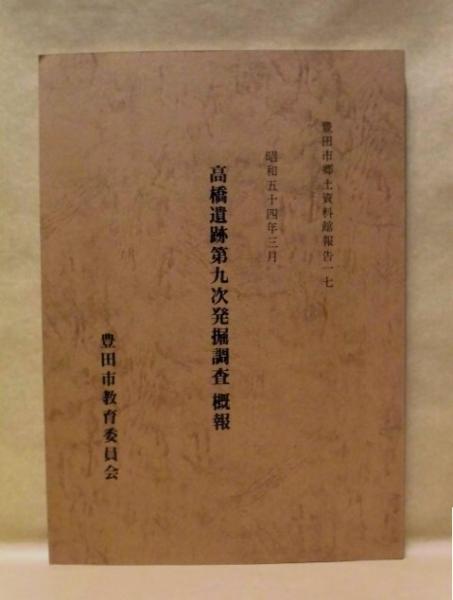 豊田市郷土資料館報告一七
昭和五十四年三月
高橋遺跡第九次発掘調査概報
豊田市教育委員会